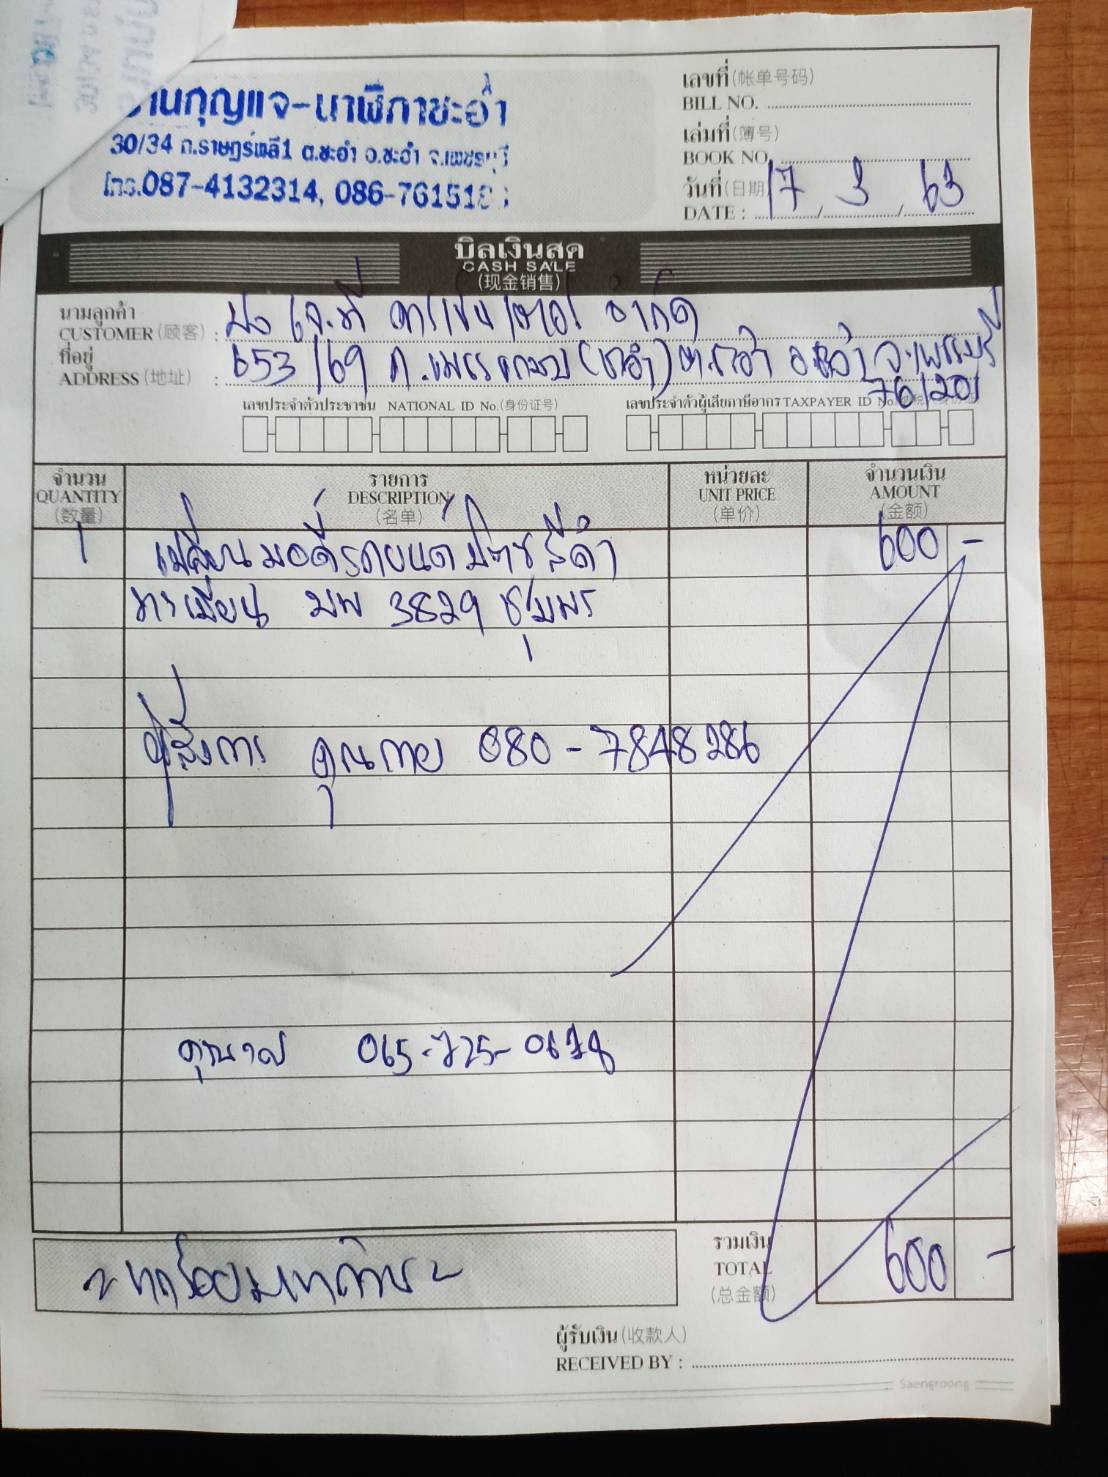 านกุญแจ-นาฬิกาชะอำ
30/34 ถ.ราษฎร์พลี1 ต.ชะอำ อ.ชะอำ จ.เพชรบุรี
โทร.087-4132314, 086-76151
เลขที่ (帐单号码)
BILL NO.
เล่มที่ (簿号)
BOOK NO.
วันที่ (日期)
DATE : 17 / 3 / 63
บิลเงินสด
CASH SALE
(现金销售)
นามลูกค้า
CUSTOMER (顾客) : จำกัด
ที่อยู่
ADDRESS (地址) : 653/69 ถ.เพชรเกษม (ชะอำ) ต.ชะอำ อ.ชะอำ จ.เพชรบุรี
76120
เลขประจำตัวประชาชน NATIONAL ID No. (身份证号)
เลขประจำตัวผู้เสียภาษีอากร TAXPAYER ID No.
จำนวน QUANTITY (数量)
รายการ DESCRIPTION (名单)
หน่วยละ UNIT PRICE (单价)
จำนวนเงิน AMOUNT (金额)
1 รถยนต์ สีดำ 600 -
ทะเบียน 3829 ชุมพร
ผู้สั่งการ คุณ 080-7848286
065-725-0678
~ หกร้อยบาทถ้วน ~
รวมเงิน
TOTAL 600 -
(总金额)
ผู้รับเงิน (收款人)
RECEIVED BY :
Saengroong